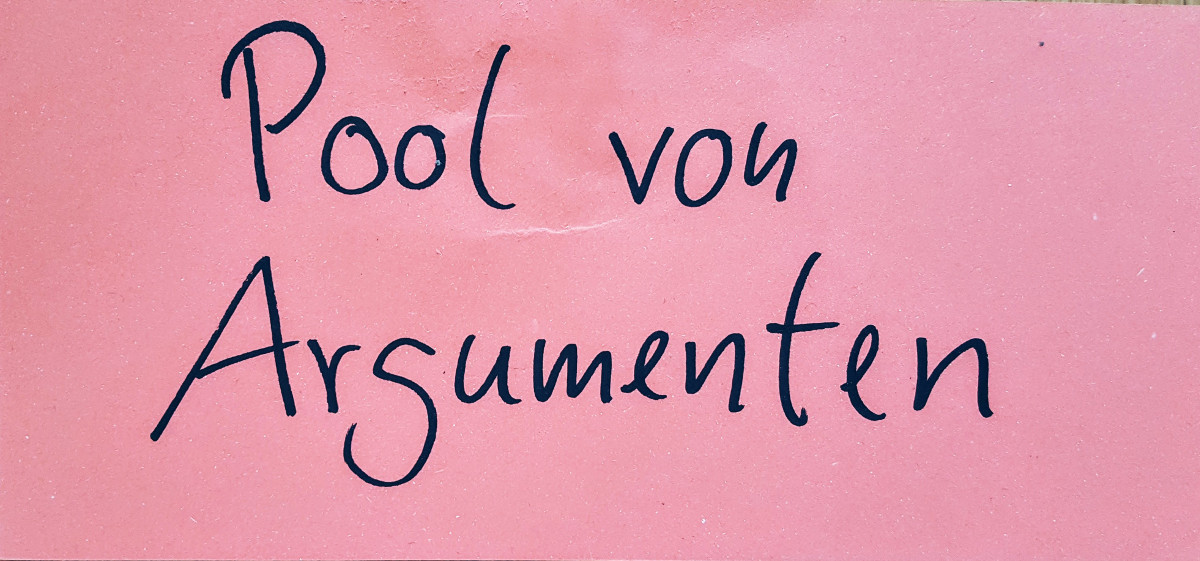 Pool von
Argumenten